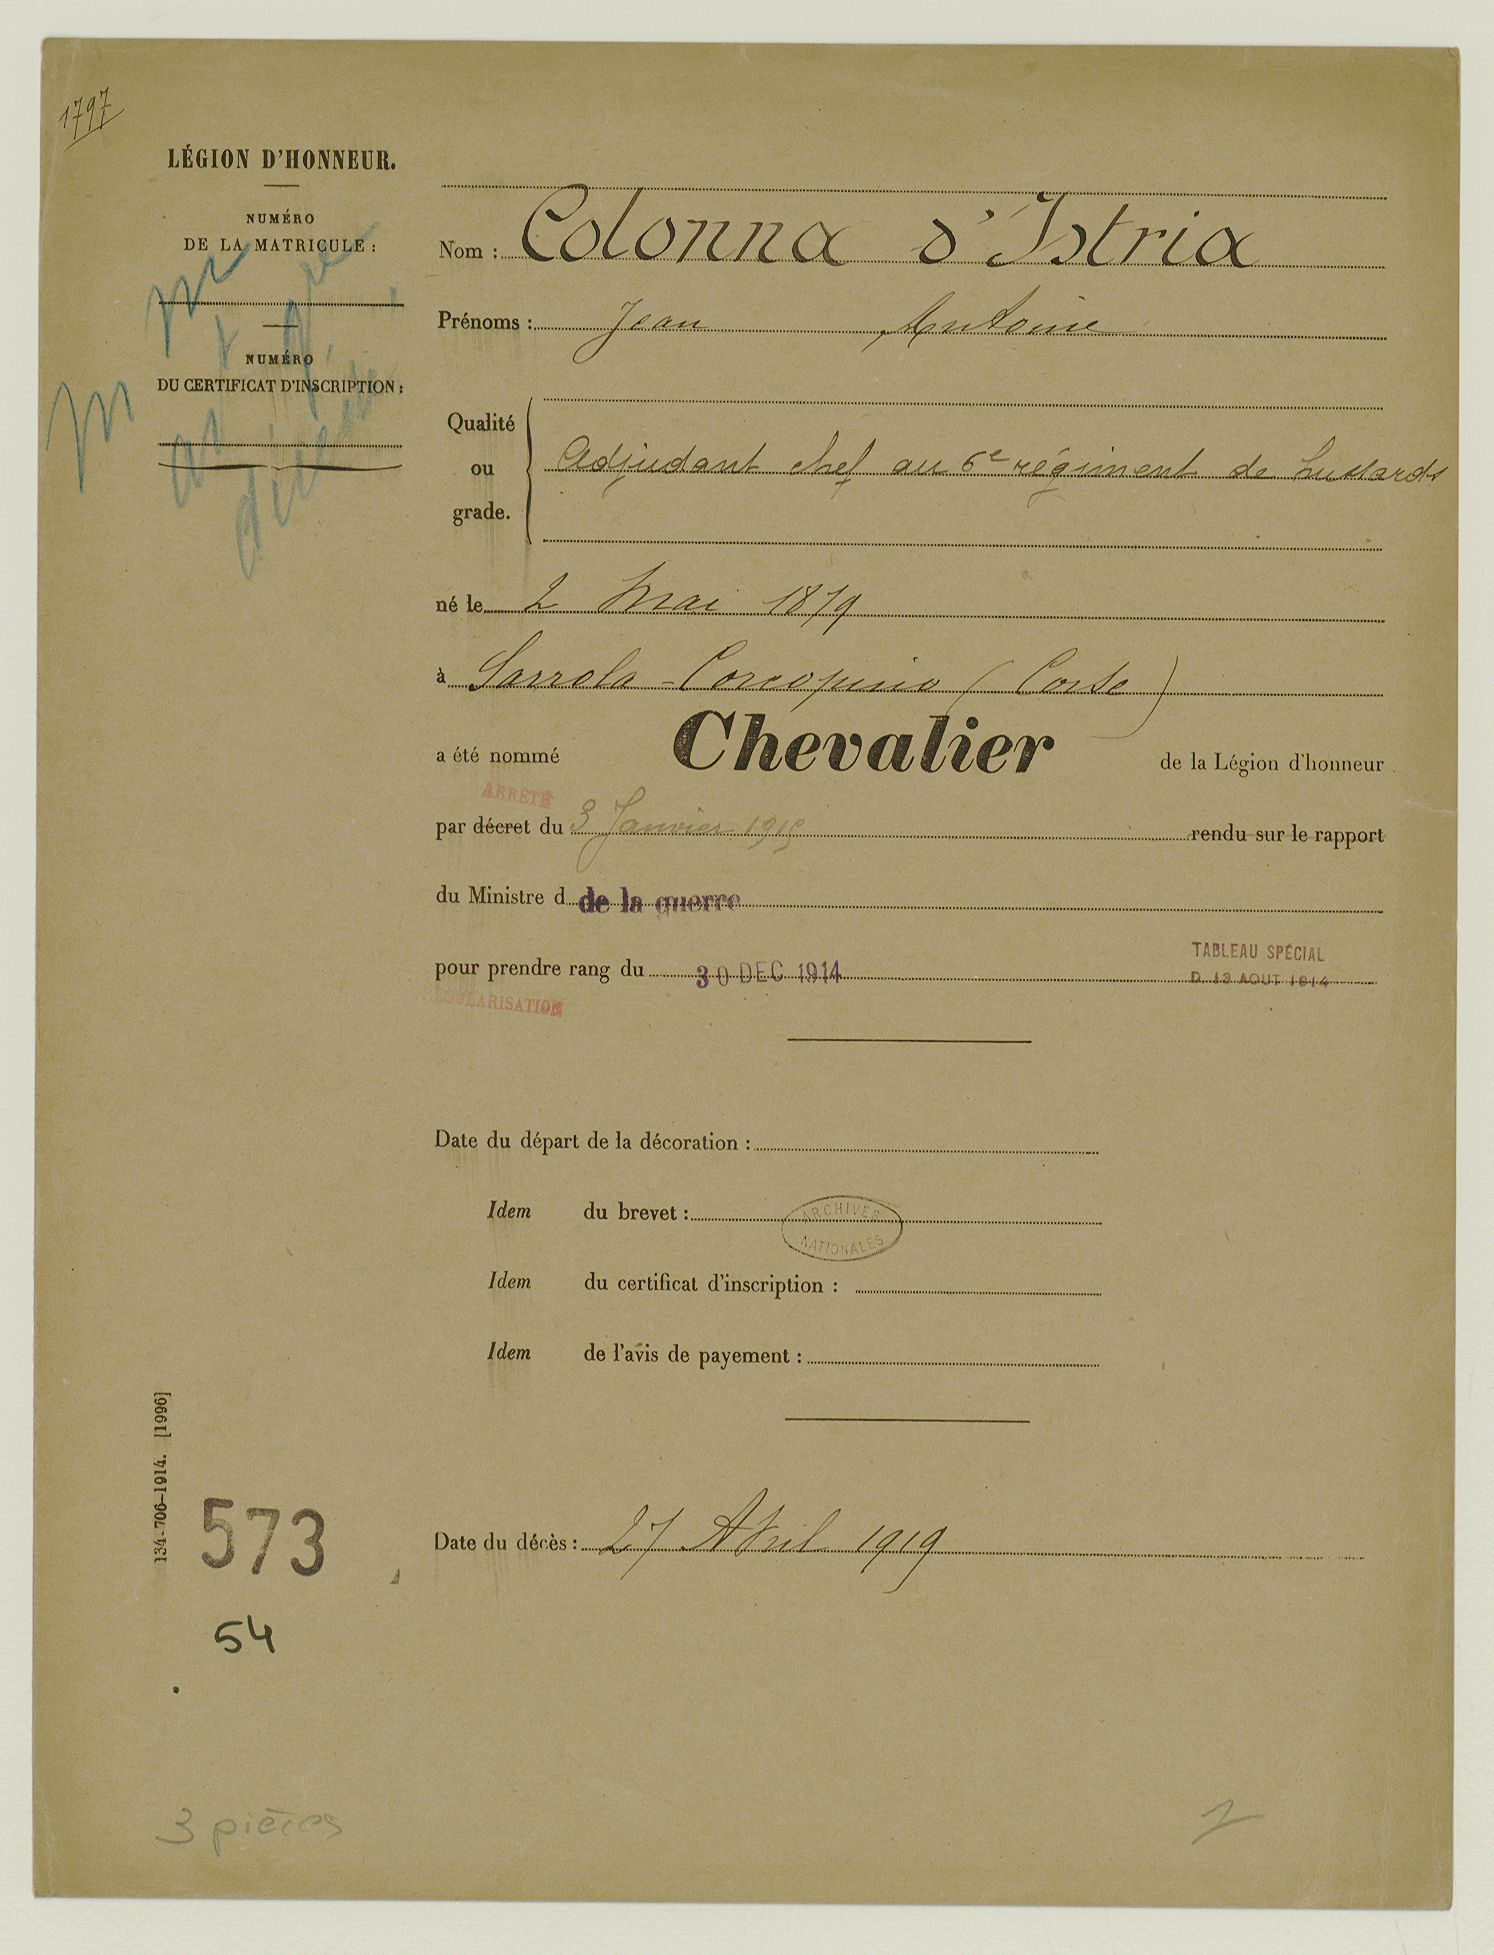 1797
LÉGION D'HONNEUR.
NUMÉRO
DE LA MATRICULE :
NUMÉRO
DU CERTIFICAT D'INSCRIPTION :
Nom : Colonna d'Istria
Prénoms : Jean Antoine
Qualité
ou
grade.
Adjudant chef au 6e régiment de hussards
né le 2 Mai 1879
à Sarrola-Carcopino (Corse)
a été nommé Chevalier de la Légion d'honneur
ARRETÉ
par décret du 3 Janvier 1915 rendu sur le rapport
du Ministre d de la guerre
TABLEAU SPÉCIAL
pour prendre rang du 30 DEC 1914 D. 13 AOUT 1914
RÉGULARISATION
Date du départ de la décoration :
Idem du brevet :
ARCHIVES
NATIONALES
Idem du certificat d'inscription :
Idem de l'avis de payement :
134-706-1914. [1996]
573
Date du décès : 27 Avril 1919
54
3 pièces